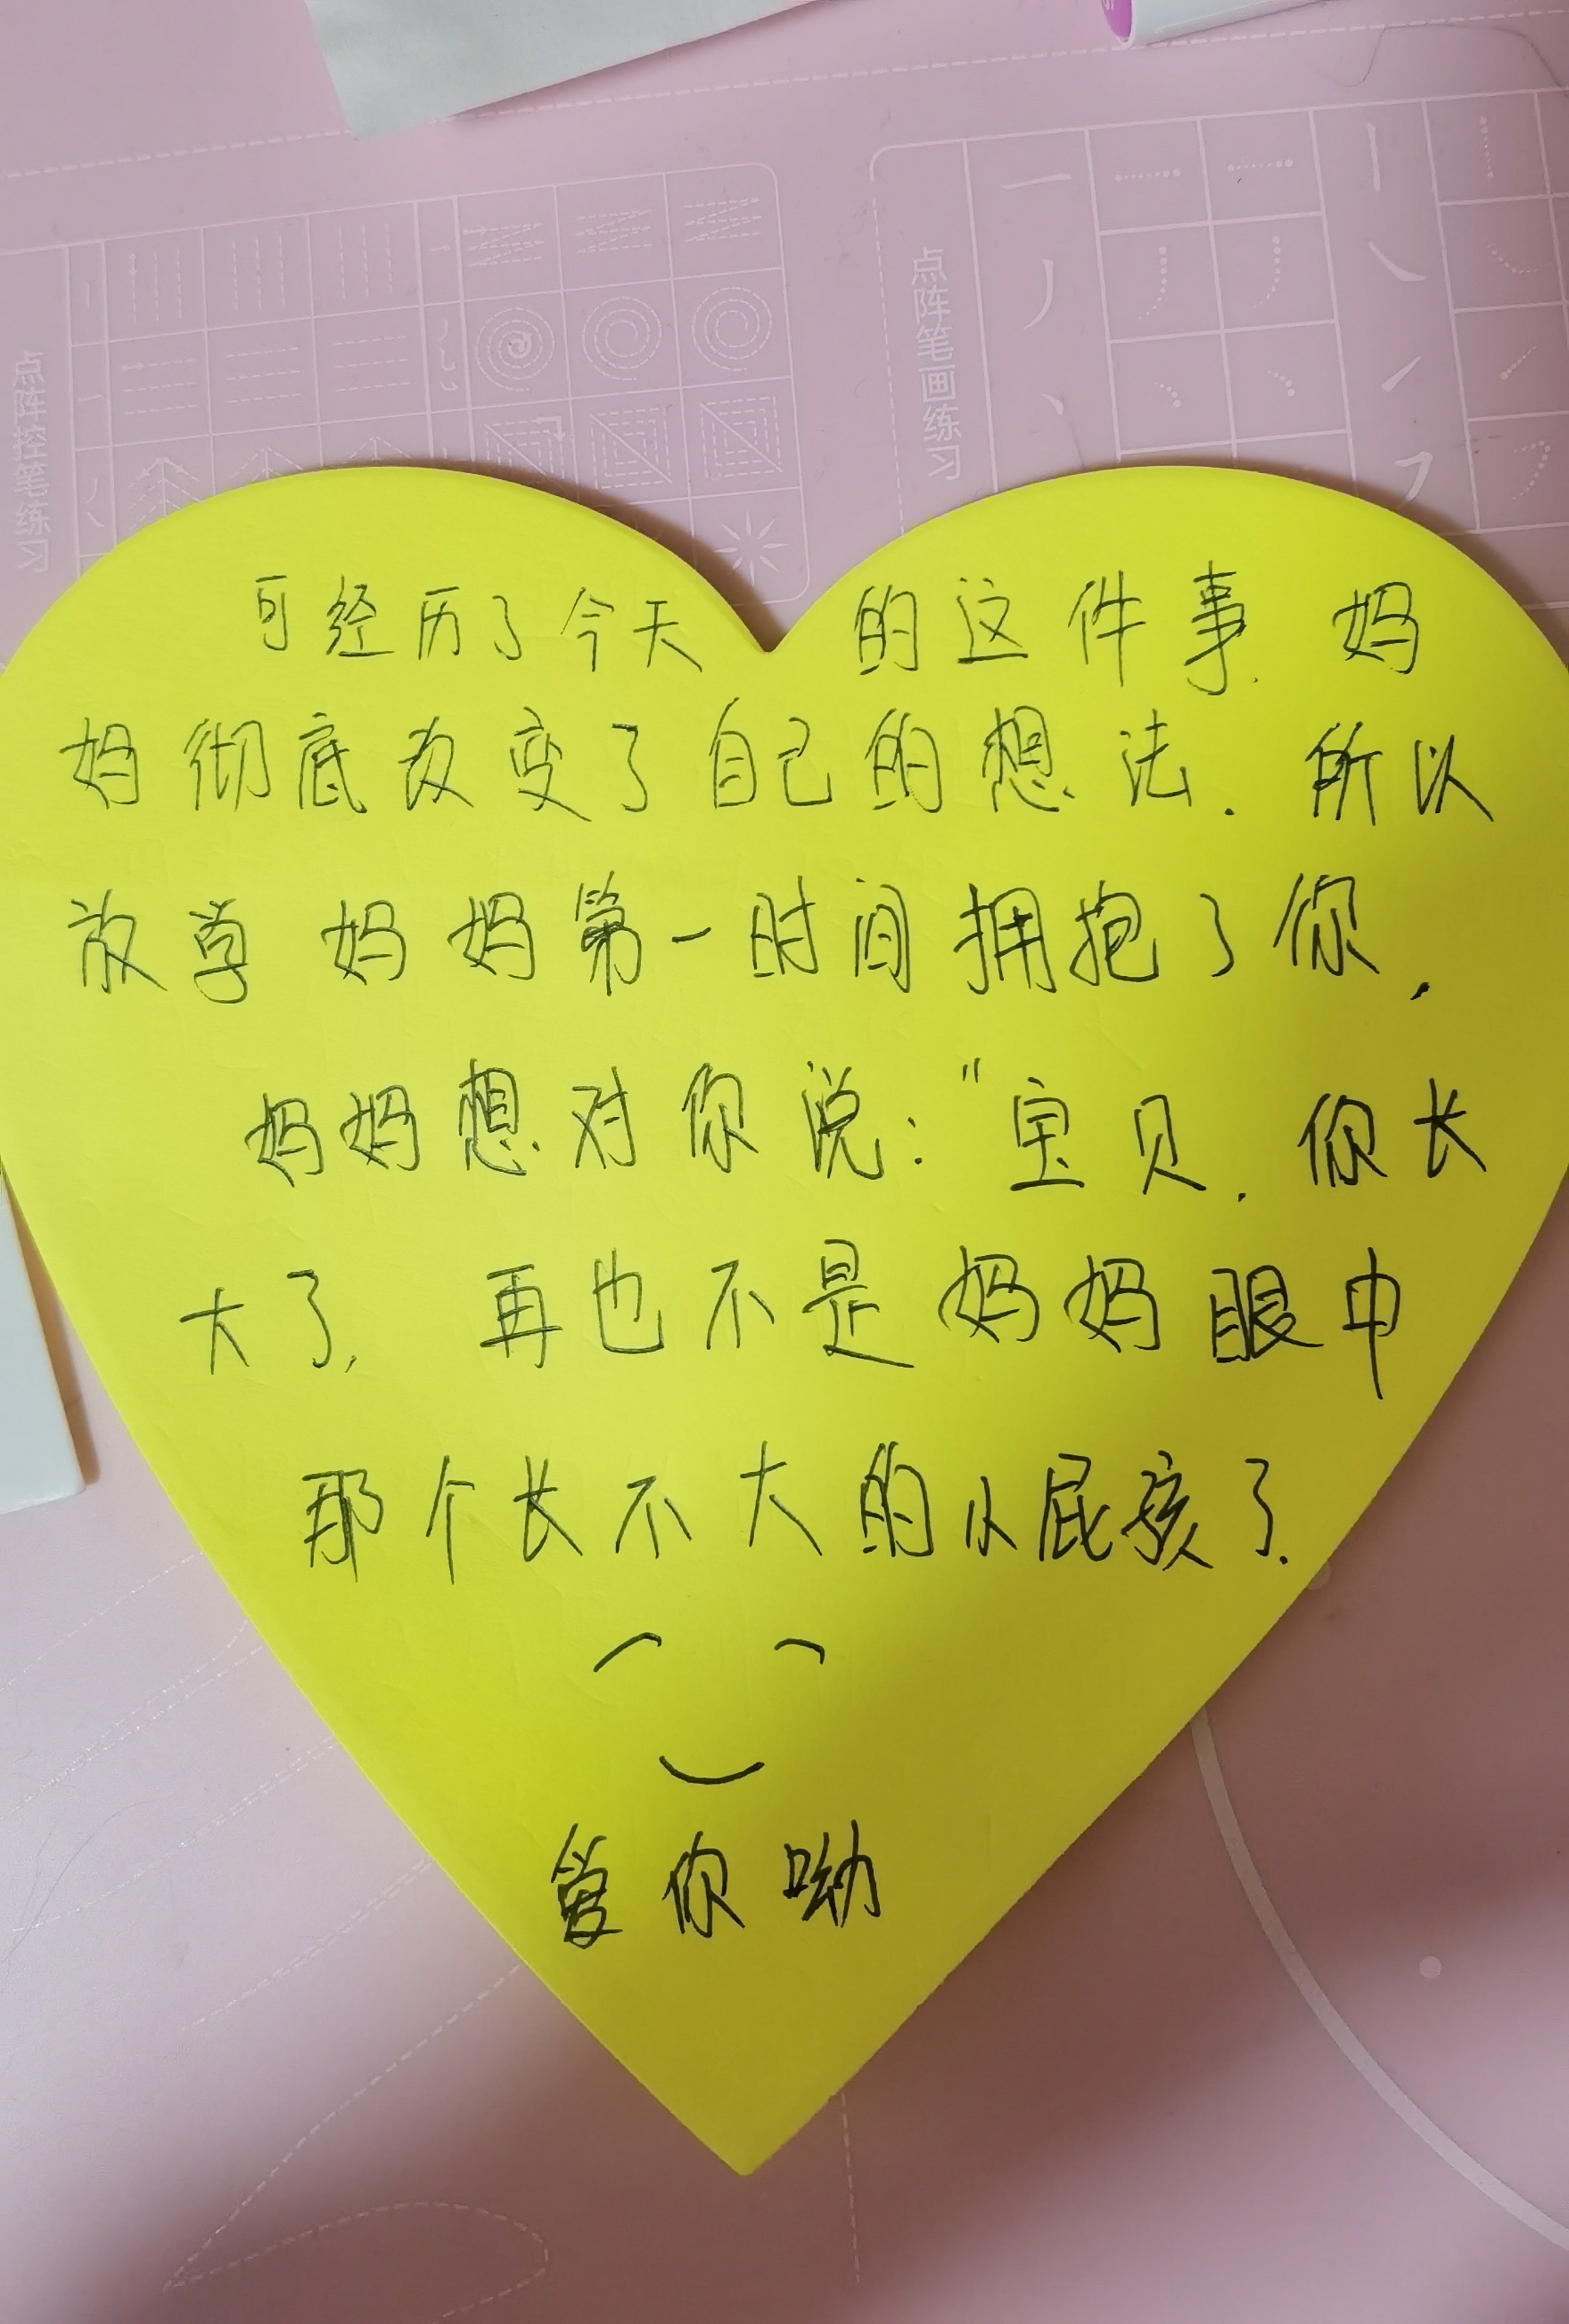 点阵控笔练习
点阵笔画练习
可经历了今天 的这件事.妈
妈彻底改变了自己的想法.所以
放学妈妈第一时间拥抱了你,
妈妈想对你说:"宝贝.你长
大了,再也不是妈妈眼中
那个长不大的小屁孩了.
爱你呦